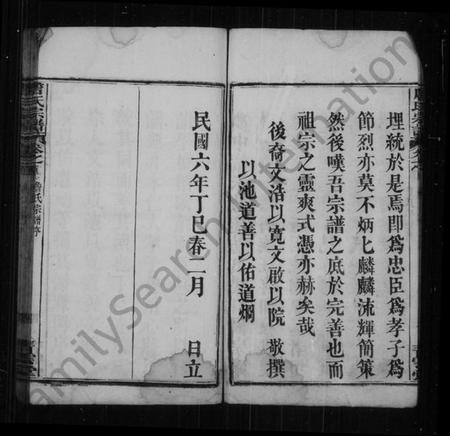 埋統於是焉卽爲忠臣爲孝子爲
節烈亦莫不炳匕麟麟流輝簡策
然後嘆吾宗譜之底於完善也而
祖宗之靈爽式憑亦赫矣哉
後裔文浩以寬文啟以院 敬撰
以池道善以佑道炯
民國六年丁巳春二月 日立
FamilySearch International